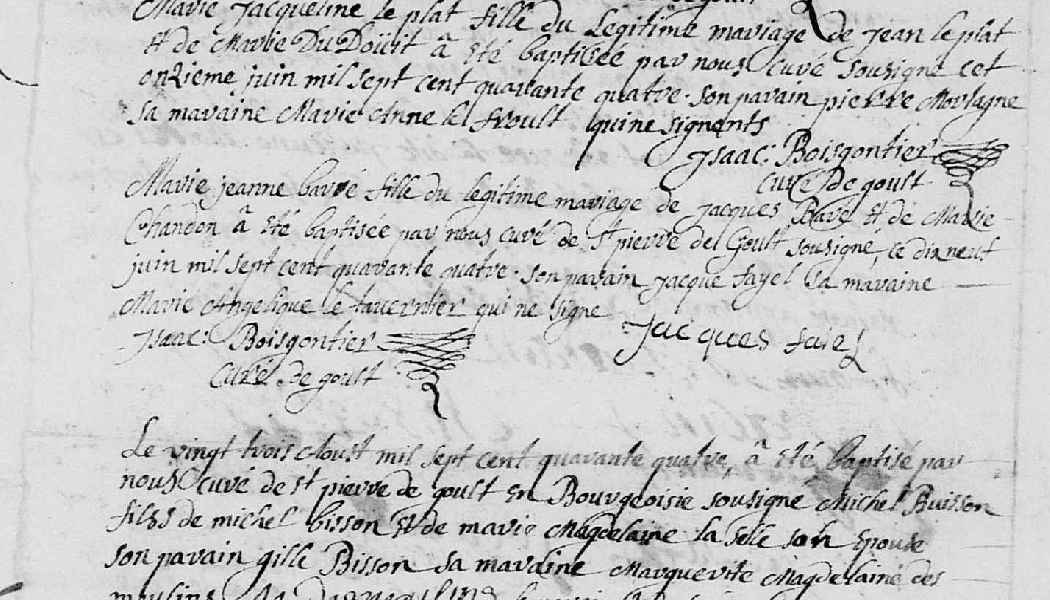 Marie Jacqueline le plat fille du legitime mariage de jean le plat
Et de Marie Du Doüit â Eté baptisée par nous Curé sousigné cet
onzieme juin mil sept cent quarante quatre. son parain pierre Mortagne
sa maraine Marie Anne le froult qui ne signents
Jsaac: Boisgontier
Curé De goult
Marie jeanne bavé fille du legitime mariage de jacques Bavé Et de Marie
Chandon â Eté baptisée par nous curé de st pierre del Goult sousigné, ce dix neuf
juin mil sept cent quarante quatre. son parain jacque fayel sa maraine
Marie Angelique le tavernier qui ne signe
Jsaac: Boisgontier
Jacques faiel
Curé de goult
Le vingt trois Aoust mil sept cent quarante quatre, â Eté Baptisé par
nous Curé de st pierre de goult En Bourgeoisie sousigné Michel Buisson
fils de michel bisson Et de marie Magdelaine la selle son Epouse
son parain gille Bisson sa maraine Marguerite Magdelaine des
moulins